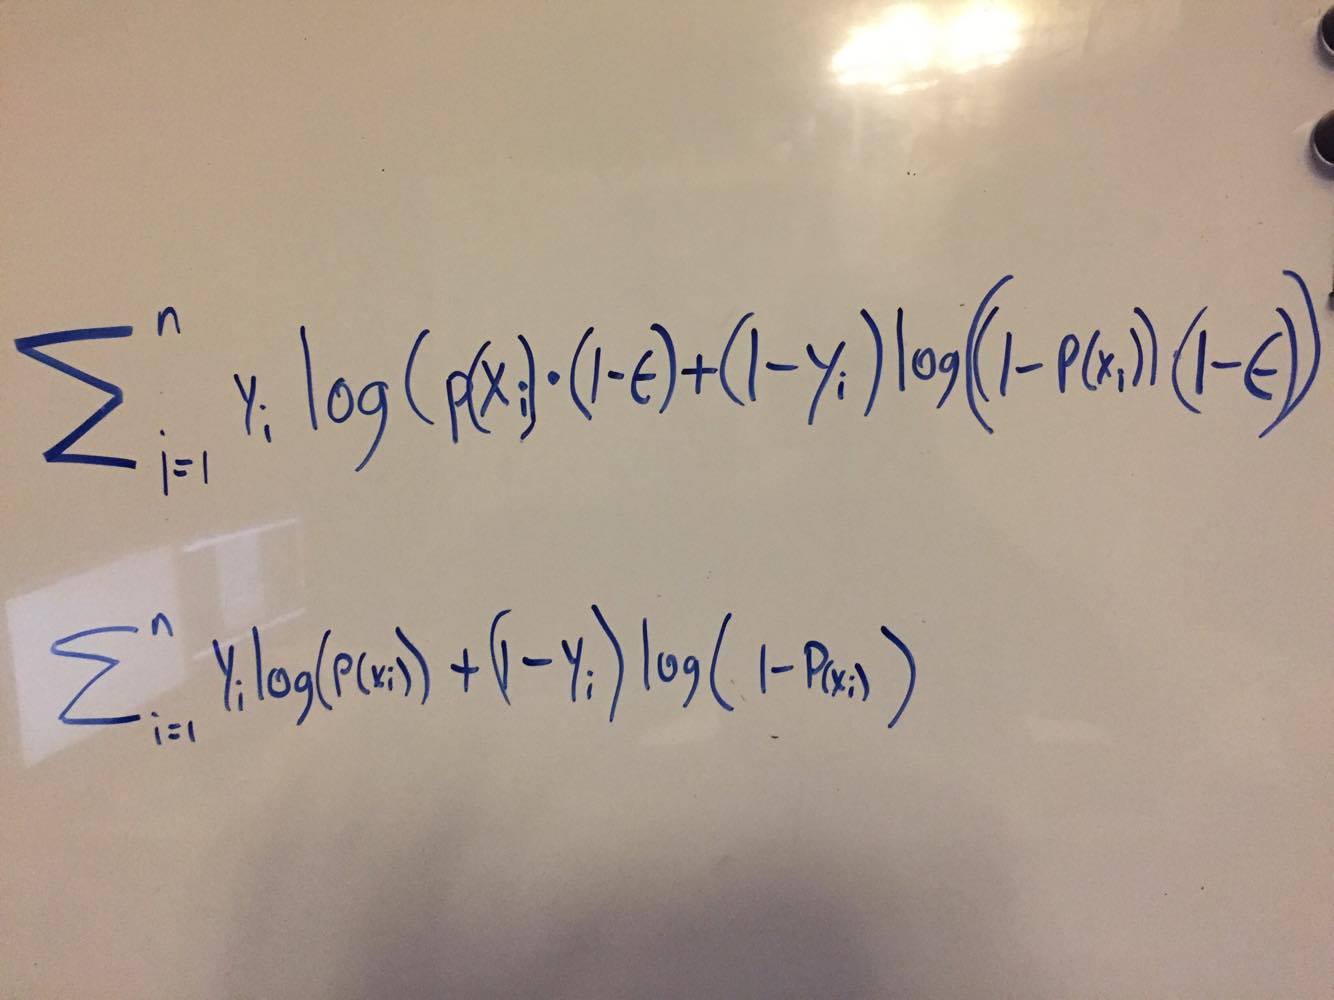 ∑ⁿᵢ₌₁ yᵢ log(p(xᵢ)·(1-ϵ)+(1-yᵢ)log((1-p(xᵢ))(1-ϵ))
∑ⁿᵢ₌₁ yᵢ log(p(xᵢ)) + (1-yᵢ) log(1-p(xᵢ))